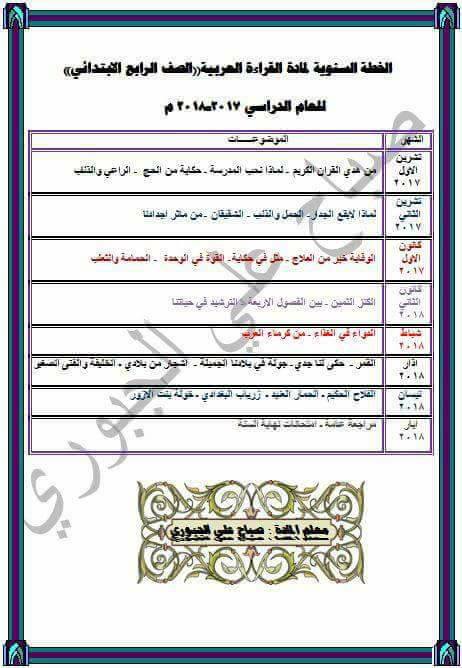 الخطة السنوية لمادة القراءة العربية((الصف الرابع الابتدائي))
للعام الدراسي ٢٠١٧-٢٠١٨ م
الشهر الموضوعــــات
تشرين الاول ٢٠١٧ من هدي القران الكريم - لماذا نحب المدرسة - حكاية من الحج - الراعي والذئب
تشرين الثاني ٢٠١٧ لماذا لايقع الجدار- الجمل والذئب - الشقيقان - من ماثر اجدادنا
كانون الاول ٢٠١٧ الوقاية خير من العلاج - مثل في حكاية- القوة في الوحدة - الحمامة والثعلب
كانون الثاني ٢٠١٨ الكنز الثمين - بين الفصول الاربعة - الترشيد في حياتنا
شباط ٢٠١٨ الدواء في الغذاء - من كرماء العرب
اذار ٢٠١٨ القمر - حكى لنا جدي- جولة في بلادنا الجميلة - اشجار من بلادي - الخليفة والفتى الصغير
نيسان ٢٠١٨ الفلاح الحكيم - الحمار العنيد - زرياب البغدادي - خولة بنت الازور
ايار ٢٠١٨ مراجعة عامة - امتحانات نهاية السنة
معلم المادة : صباح علي الجبوري
صباح علي الجبوري